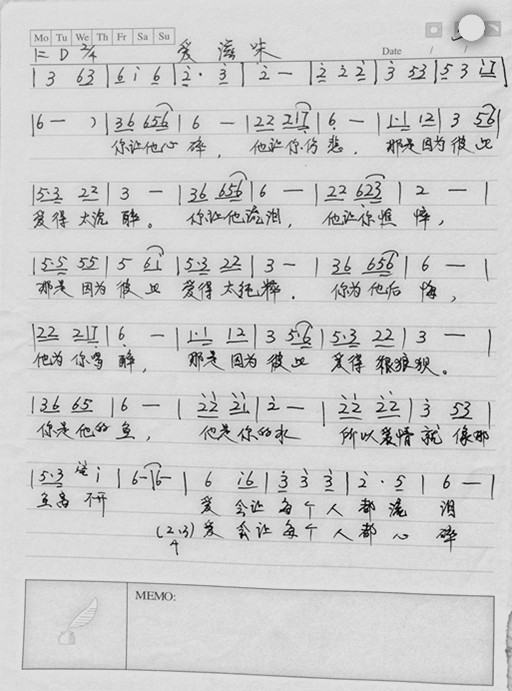 Mo Tu We Th Fr Sa Su
1=D 2/4 爱滋味 Date / /
| 3 63 | 6 i 6 | 2· 3 | 2 — | 2 2 2 | 3 53 | 5 3 i7 |
| 6 — ) | 36 656 | 6 — | 22 217 | 6 — | 1·1 12 | 3 56 |
你让他心碎， 他让你伤悲， 那是因为彼此
| 5·3 22 | 3 — | 36 656 | 6 — | 22 623 | 2 — |
爱得太沉醉。 你让他流泪， 他让你憔悴，
| 5·5 55 | 5 6i | 5·3 22 | 3 — | 36 656 | 6 — |
那是因为彼此 爱得太纯粹， 你为他后悔，
| 22 217 | 6 — | 1·1 12 | 3 5·6 | 5·3 22 | 3 — |
他为你喝醉， 那是因为彼此 爱得狠狼狈。
| 36 65 | 6 — | 22 21 | 2 — | 22 22 | 3 53 |
你是他的鱼， 他是你的水 所以爱情就像那
| 5·3 i | 6 — | 6 — | 6 i6 | 3 3 3 | 2· 5 | 6 — |
鱼离不开 爱会让每个人都流泪
(2·3) 爱会让每个人都心碎
4
MEMO: